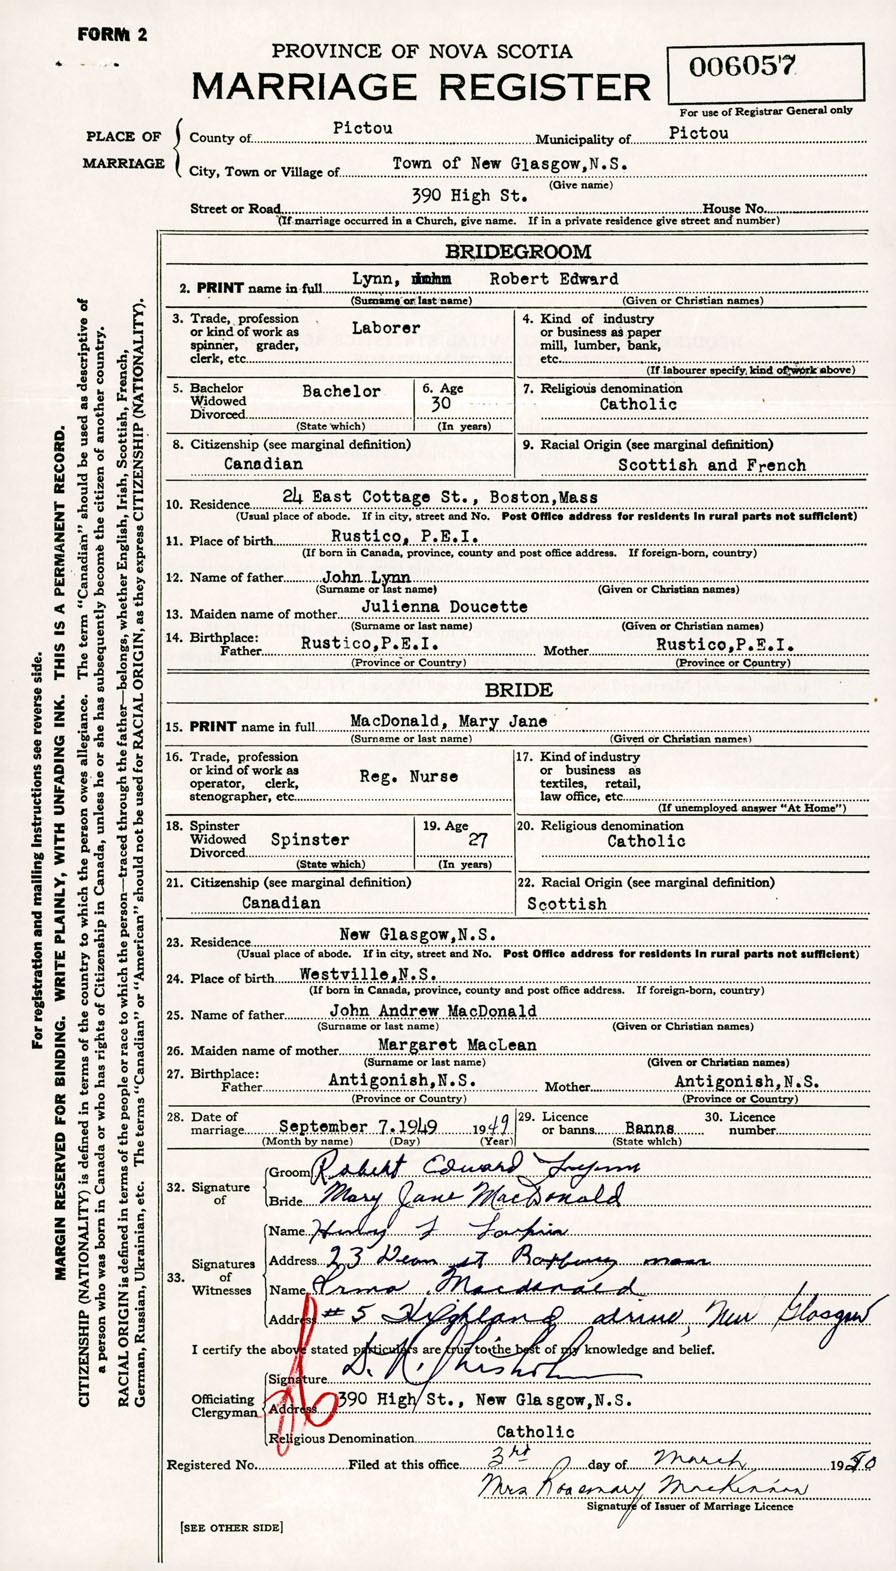 FORM 2
PROVINCE OF NOVA SCOTIA
MARRIAGE REGISTER
006057
For use of Registrar General only
PLACE OF MARRIAGE
County of Pictou Municipality of Pictou
City, Town or Village of Town of New Glasgow,N.S.
(Give name)
390 High St.
Street or Road House No.
(If marriage occurred in a Church, give name. If in a private residence give street and number)
BRIDEGROOM
2. PRINT name in full Lynn, Robert Edward
(Surname or last name) (Given or Christian names)
3. Trade, profession or kind of work as spinner, grader, clerk, etc. Laborer
4. Kind of industry or business as paper mill, lumber, bank, etc.
(If labourer specify kind of work above)
5. Bachelor Widowed Divorced Bachelor
(State which)
6. Age 30
(In years)
7. Religious denomination
Catholic
8. Citizenship (see marginal definition)
Canadian
9. Racial Origin (see marginal definition)
Scottish and French
10. Residence 24 East Cottage St., Boston,Mass
(Usual place of abode. If in city, street and No. Post Office address for residents in rural parts not sufficient)
11. Place of birth Rustico, P.E.I.
(If born in Canada, province, county and post office address. If foreign-born, country)
12. Name of father John Lynn
(Surname or last name) (Given or Christian names)
13. Maiden name of mother Julienna Doucette
(Surname or last name) (Given or Christian names)
14. Birthplace:
Father Rustico,P.E.I. Mother Rustico,P.E.I.
(Province or Country) (Province or Country)
BRIDE
15. PRINT name in full MacDonald, Mary Jane
(Surname or last name) (Given or Christian names)
16. Trade, profession or kind of work as operator, clerk, stenographer, etc. Reg. Nurse
17. Kind of industry or business as textiles, retail, law office, etc.
(If unemployed answer "At Home")
18. Spinster Widowed Divorced Spinster
(State which)
19. Age 27
(In years)
20. Religious denomination
Catholic
21. Citizenship (see marginal definition)
Canadian
22. Racial Origin (see marginal definition)
Scottish
23. Residence New Glasgow,N.S.
(Usual place of abode. If in city, street and No. Post Office address for residents in rural parts not sufficient)
24. Place of birth Westville,N.S.
(If born in Canada, province, county and post office address. If foreign-born, country)
25. Name of father John Andrew MacDonald
(Surname or last name) (Given or Christian names)
26. Maiden name of mother Margaret MacLean
(Surname or last name) (Given or Christian names)
27. Birthplace:
Father Antigonish,N.S. Mother Antigonish,N.S.
(Province or Country) (Province or Country)
28. Date of marriage September 7.1949 1949
(Month by name) (Day) (Year)
29. Licence or banns Banns
(State which)
30. Licence number
32. Signature of
Groom Robert Edward Lynn
Bride Mary Jane MacDonald
33. Signatures of Witnesses
Name Henry L
Address 23 Dean st Roxbury mass
Name Irma Macdonald
Address #5 Highland drive, New Glasgow
I certify the above stated particulars are true to the best of my knowledge and belief.
Officiating Clergyman
Signature D. K. Chisholm
Address 390 High St., New Glasgow,N.S.
Religious Denomination Catholic
Registered No. Filed at this office 3rd day of March 1950
Mrs Rosemary MacKinnon
Signature of Issuer of Marriage Licence
[SEE OTHER SIDE]
For registration and mailing instructions see reverse side.
MARGIN RESERVED FOR BINDING. WRITE PLAINLY, WITH UNFADING INK. THIS IS A PERMANENT RECORD.
CITIZENSHIP (NATIONALITY) is defined in terms of the country to which the person owes allegiance. The term "Canadian" should be used as descriptive of
a person who was born in Canada or who has rights of Citizenship in Canada, unless he or she has subsequently become the citizen of another country.
RACIAL ORIGIN is defined in terms of the people or race to which the person—traced through the father—belongs, whether English, Irish, Scottish, French,
German, Russian, Ukrainian, etc. The terms "Canadian" or "American" should not be used for RACIAL ORIGIN, as they express CITIZENSHIP (NATIONALITY).